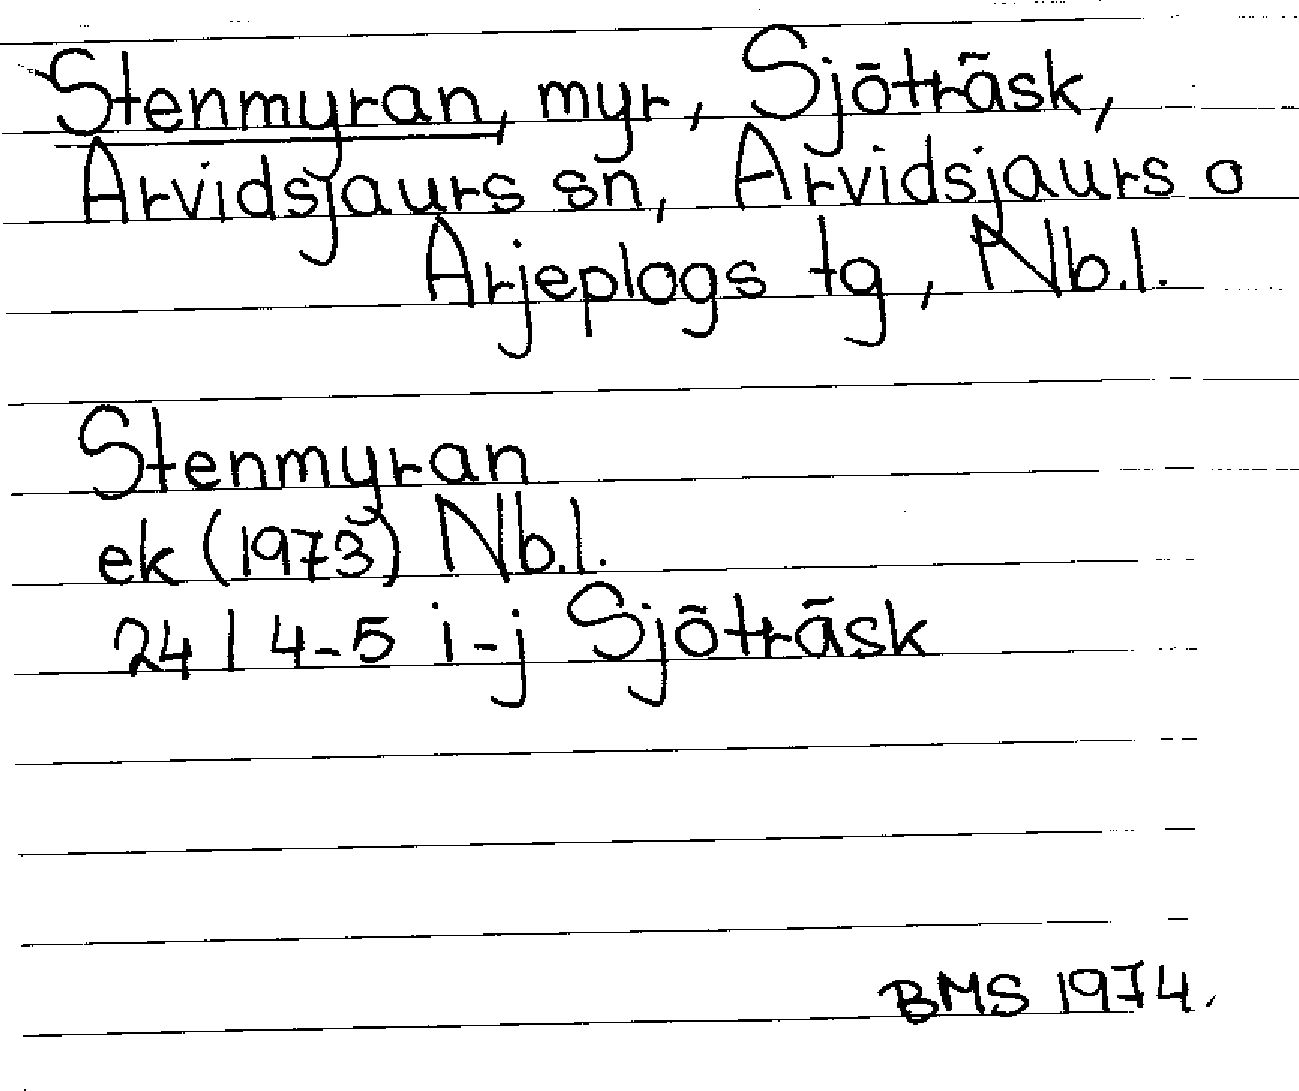 Stenmyran, myr, Sjöträsk,
Arvidsjaurs sn, Arvidsjaurs o
Arjeplogs tg, Nb.l.
Stenmyran
ek (1973) Nb.l.
24 I 4-5 i-j Sjöträsk
BMS 1974.